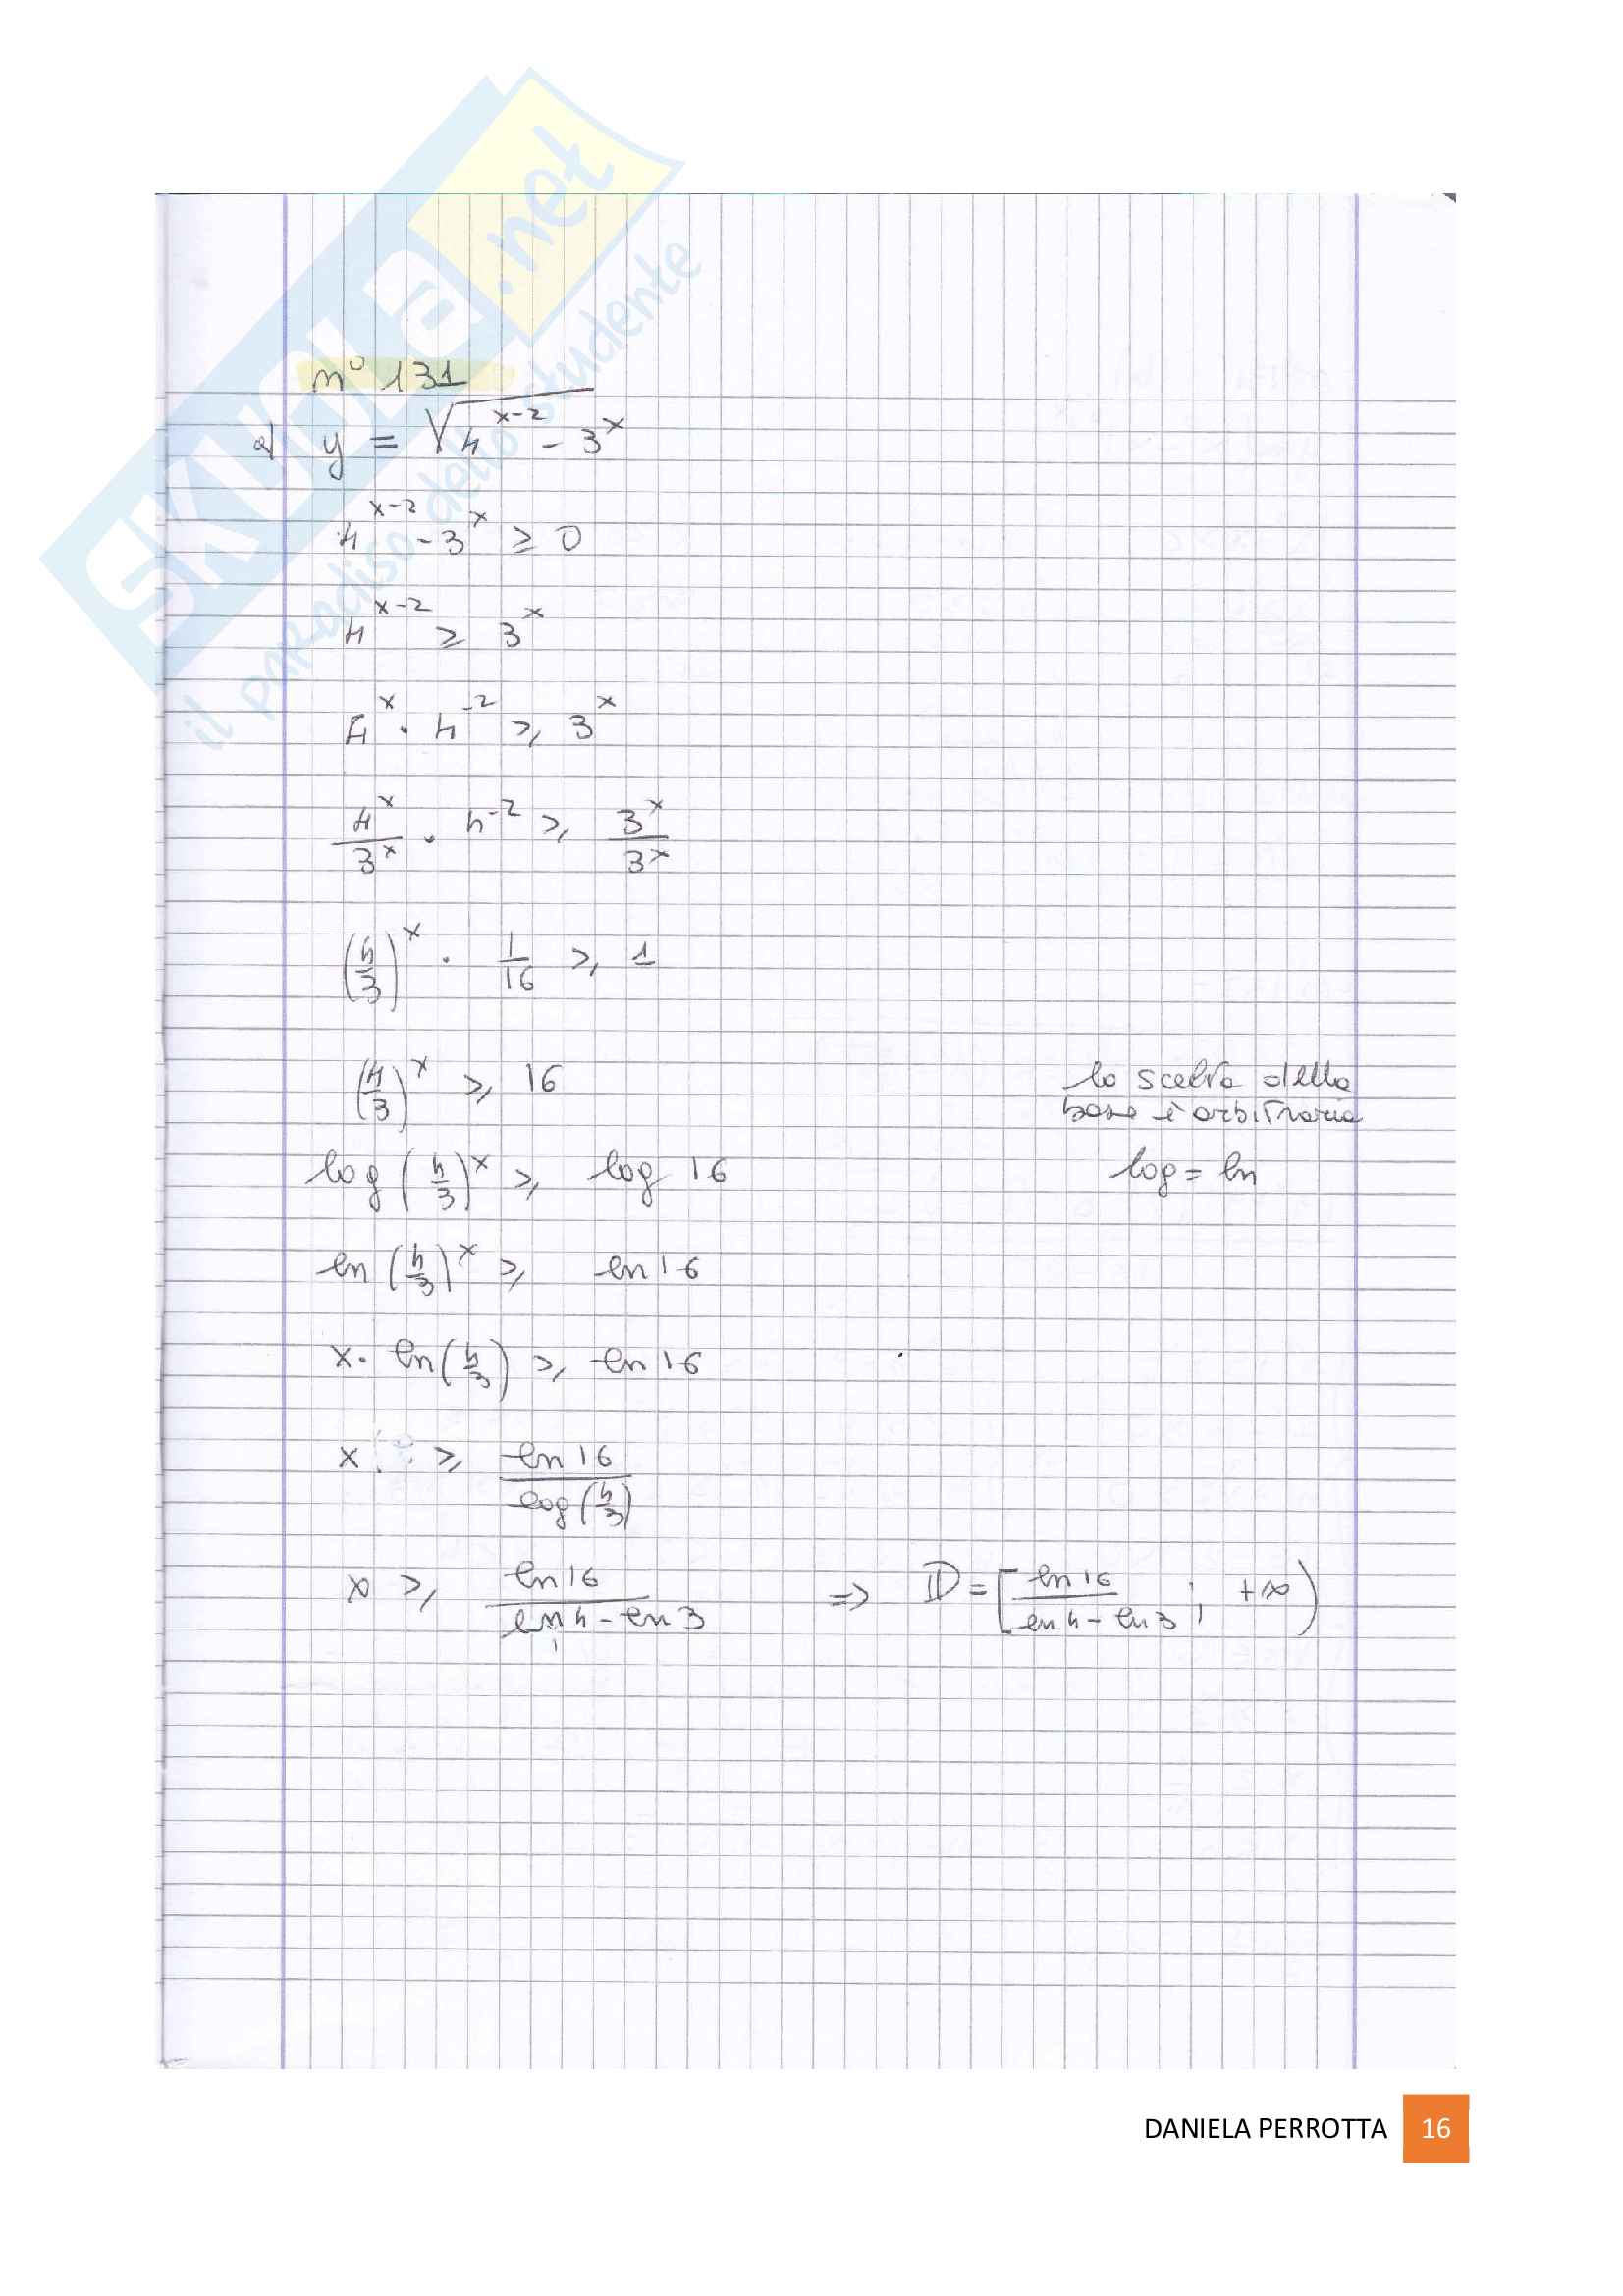 SKUOLA.net
il paradiso dello studente
n° 131
a) y = √(4^(x-2) - 3^x)
4^(x-2) - 3^x ≥ 0
4^(x-2) ≥ 3^x
4^x · 4^-2 ≥ 3^x
4^x/3^x · 4^-2 ≥ 3^x/3^x
(4/3)^x · 1/16 ≥ 1
(4/3)^x ≥ 16
la scelta della
base è arbitraria
log (4/3)^x ≥ log 16
log = ln
ln (4/3)^x ≥ ln 16
x · ln (4/3) ≥ ln 16
x ≥ ln 16 / log (4/3)
x ≥ ln 16 / (ln 4 - ln 3) => D = [ln 16 / (ln 4 - ln 3) ; +∞)
DANIELA PERROTTA 16